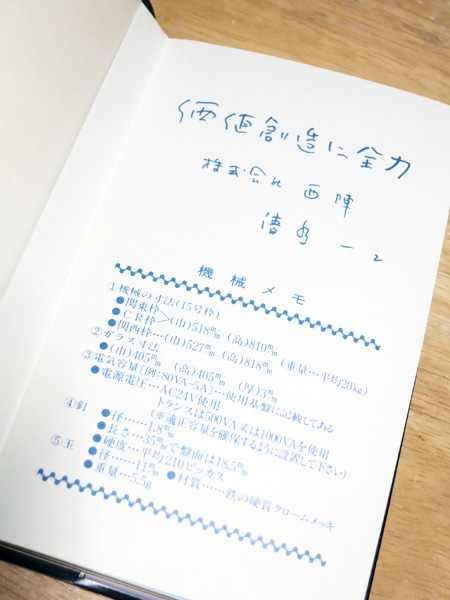 価値創造に全力
株式会社 西陣
清水 一二
機械メモ
①機械の寸法(15号枠)
●関東枠
●CR枠>(巾)518m/m (高)810m/m
●関西枠…(巾)527m/m (高)818m/m (重量…平均20kg)
②ガラス寸法
●(巾)405m/m (高)405m/m (厚)3m/m
③電気容量〔例:80VA-5A〕…使用基盤に記載してある
●電源電圧…AC24V使用
トランスは500VA又は1000VAを使用
(※適正容量を確保するように設置して下さい)
④釘
●径……1.8m/m
●長さ…35m/mで盤面は18.5m/m
●硬度…平均210ビッカス
⑤玉
●径……11m/m ●材質……鉄の硬質クロームメッキ
●重量…5.5g